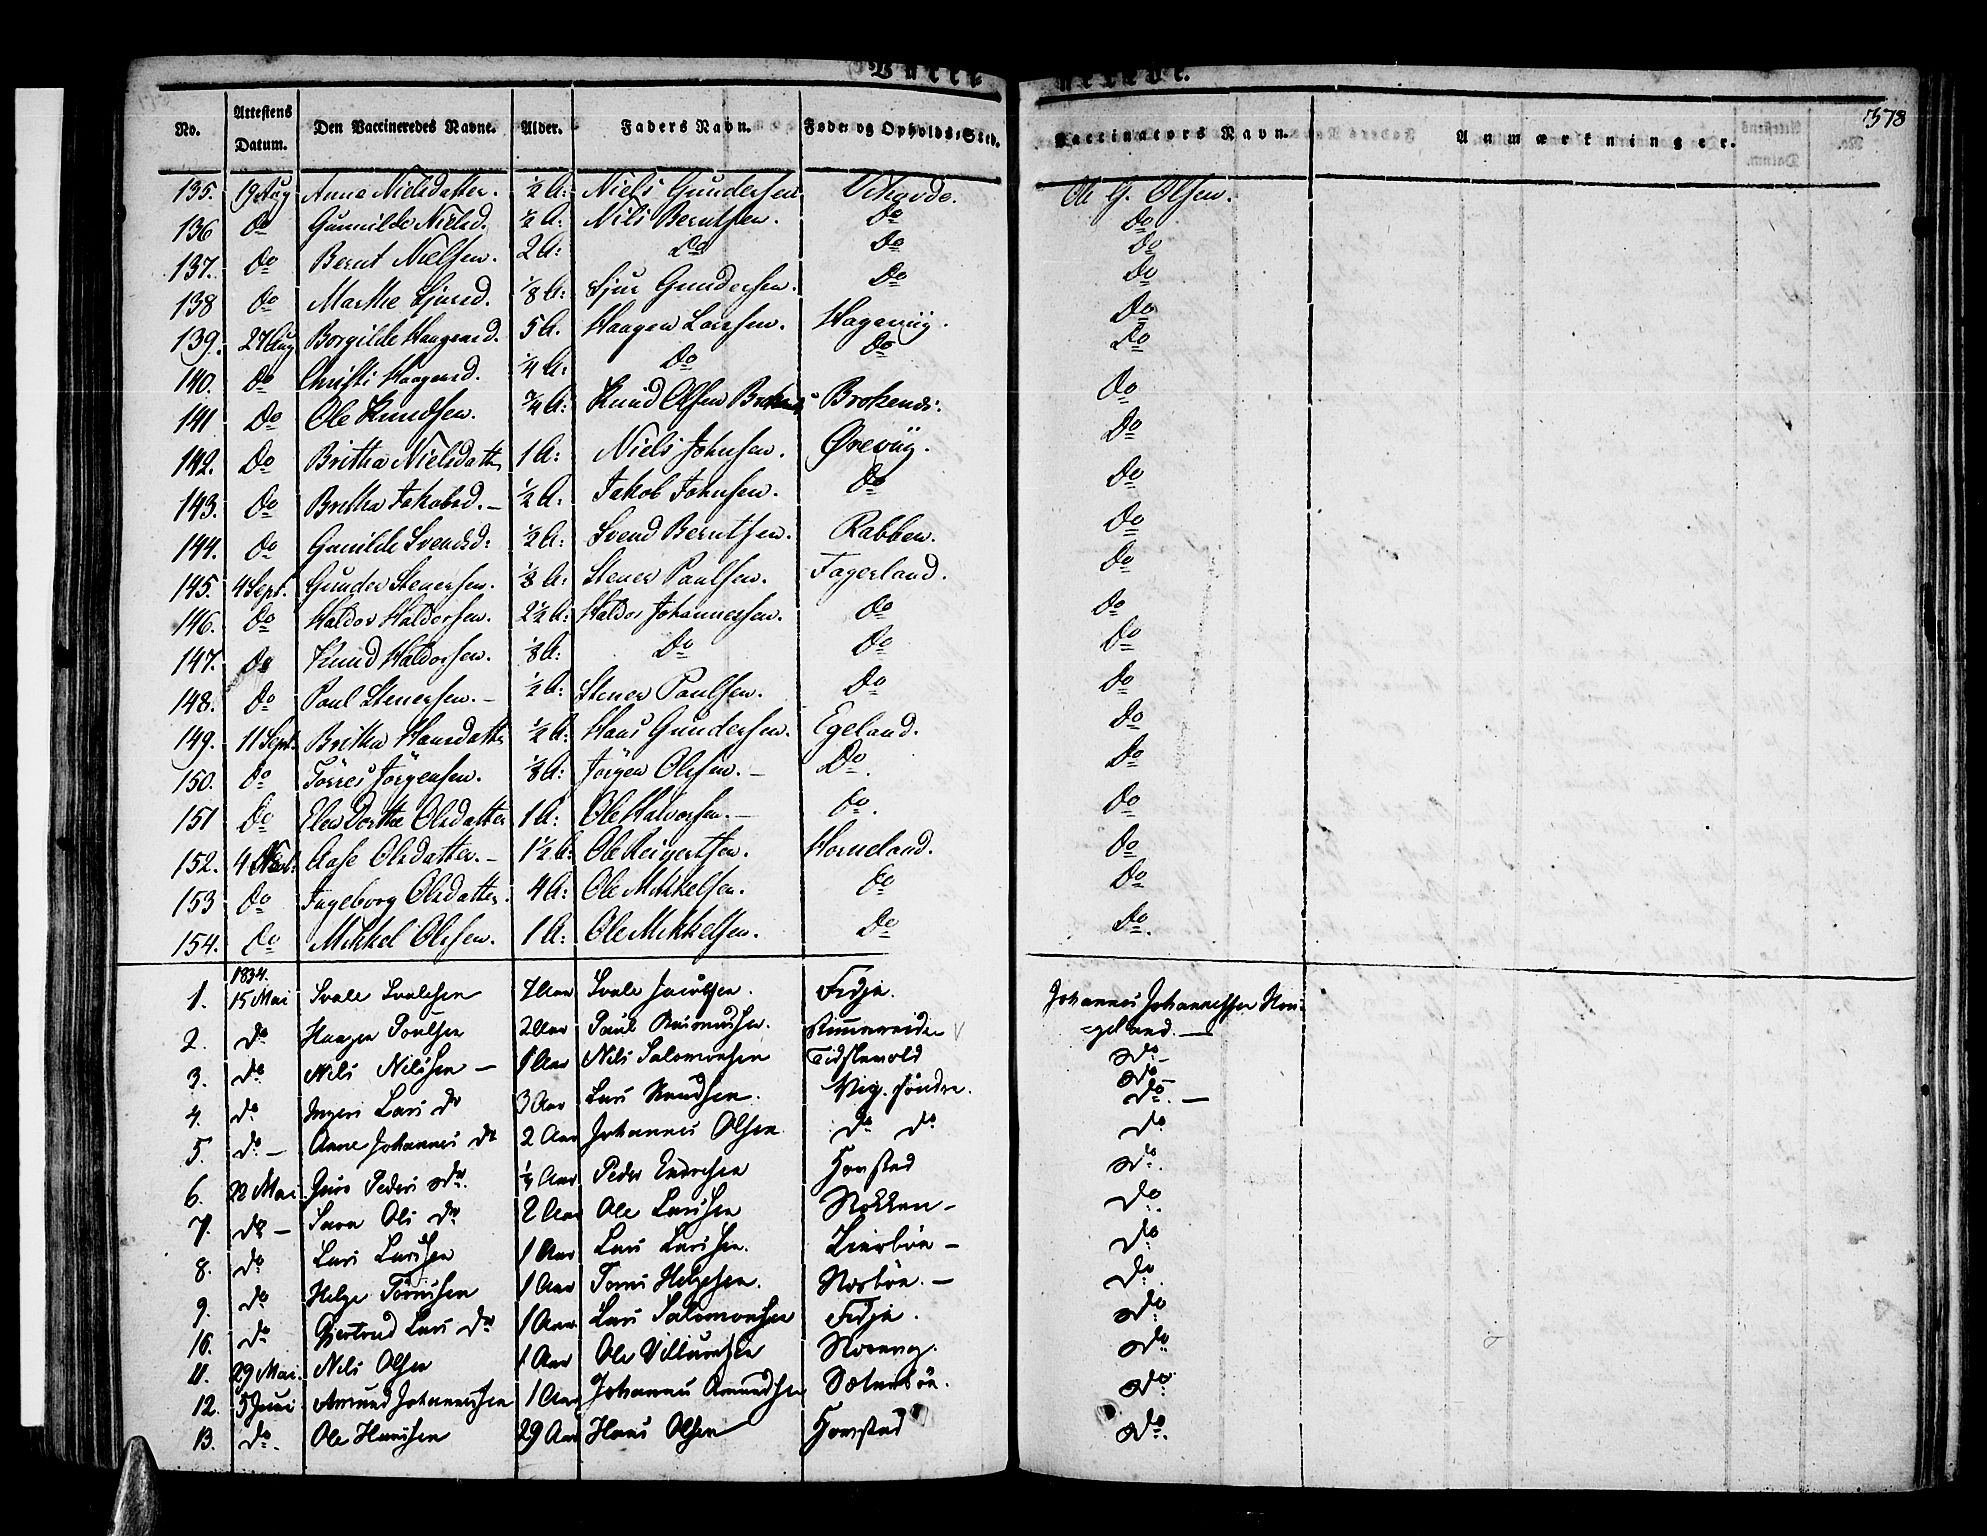 Vacci nerede.
578
No. Attestens Datum. Den Vaccineredes Navne. Alder. Faders Navn. Føde- og Opholds-Sted. Vaccinators Navn. Anmærkninger.
135. 19 Aug Anna Nielsdatter. 1/2 A: Niels Gundersen Vehavde. Ole G. Olsen.
136 Do Gunnilde Nielsd. 1/2 A: Nils Berntsen. Do Do
137. Do Bernt Nielsen. 2 A: Do Do Do
138 Do Marthe Sjursd. 1/8 A: Sjur Gundersen. Do Do
139. 27 Aug Borgilde Haagensd. 5 A. Haagen Larssen. Hageviig. Do
140. Do Christi Haagensd. 1/4 A: Do Do Do
141 Do Ole Knudsen. 3/4 A: Knud Olsen Brokends: Do
142. Do Britha Nielsdatter 1 A: Niels Johnsen. Øreviig. Do
143. Do Britha Jakobsd. – 1/2 A: Jakob Johnsen. Do Do
144. Do Gunilde Svendsd: 1/2 A: Svend Berntsen. Rabben. Do
145. 4 Sept. Gunder Stenersen. 1/8 A: Stener Paulsen. Fagerland. Do
146. Do Haldor Haldorsen. 2 1/2 A: Haldor Johannessen. Do Do
147. Do Knud Haldorsen. 1/8 A: Do Do Do
148. Do Paul Stenersen. – 1/2 A: Stener Paulsen. Do Do
149. 11 Sept. Britha Hansdatter 1/2 A: Hans Gundersen. Egeland. Do
150. Do Törres Jörgensen. 1/8 A: Jörgen Olsen. – Do. Do
151 Do Elen Dorthe Olsdatter 1 A: Ole Halvorsen. – Do. Do
152. 4 Aase Olsdatter. – 1 1/2 A: Ole Reigertsen. Horneland. Do
153 Do Ingeborg Olsdatter. 4 A: Ole Mikkelsen. Do Do
154. Do Mikkel Olsen. 1 A: Ole Mikkelsen. Do Do.
1834.
1. 15 Mai Svale Svalesen 7 Aar Svale Jacobsen. Fidje. Johannes Johannessen Hou-
2. do Haagen Poulsen 2 Aar Paul Rasmussen. Rimmereide =geland. –
3. do Nils Nilssen – 1 Aar Nils Salomonsen Tidskevold do –
4. do Inger Lars dr 3 Aar Lars Knudsen. Vig. söndre. do –
5. do – Anne Johannes dr 2 Aar Johannes Olsen do do do
6. 22 Mai Peders dr. 1/4 Aar Peder Endresen Honstad do.
7. do – Sara Ols dr 2 Aar Ole Larssen Nokken – do
8. do Lars Larssen 1 Aar Lars Larssen. Lierböe – do
9. do Helge Törrissen 1 Aar Torris Helgesen. Norböe. – do
10. do Gjertrud Lars dr 1 Aar Lars Salomonsen Fidje. do
11. 29 Mai. Nils Olsen 1 Aar Ole Villumsen do
12. 5 Juni Amund Johannessen 1 Aar Johannes Amundsen Sætersböe. do
13. do. Ole Hanssen 29 Aar Hans Olsen Honstad do.